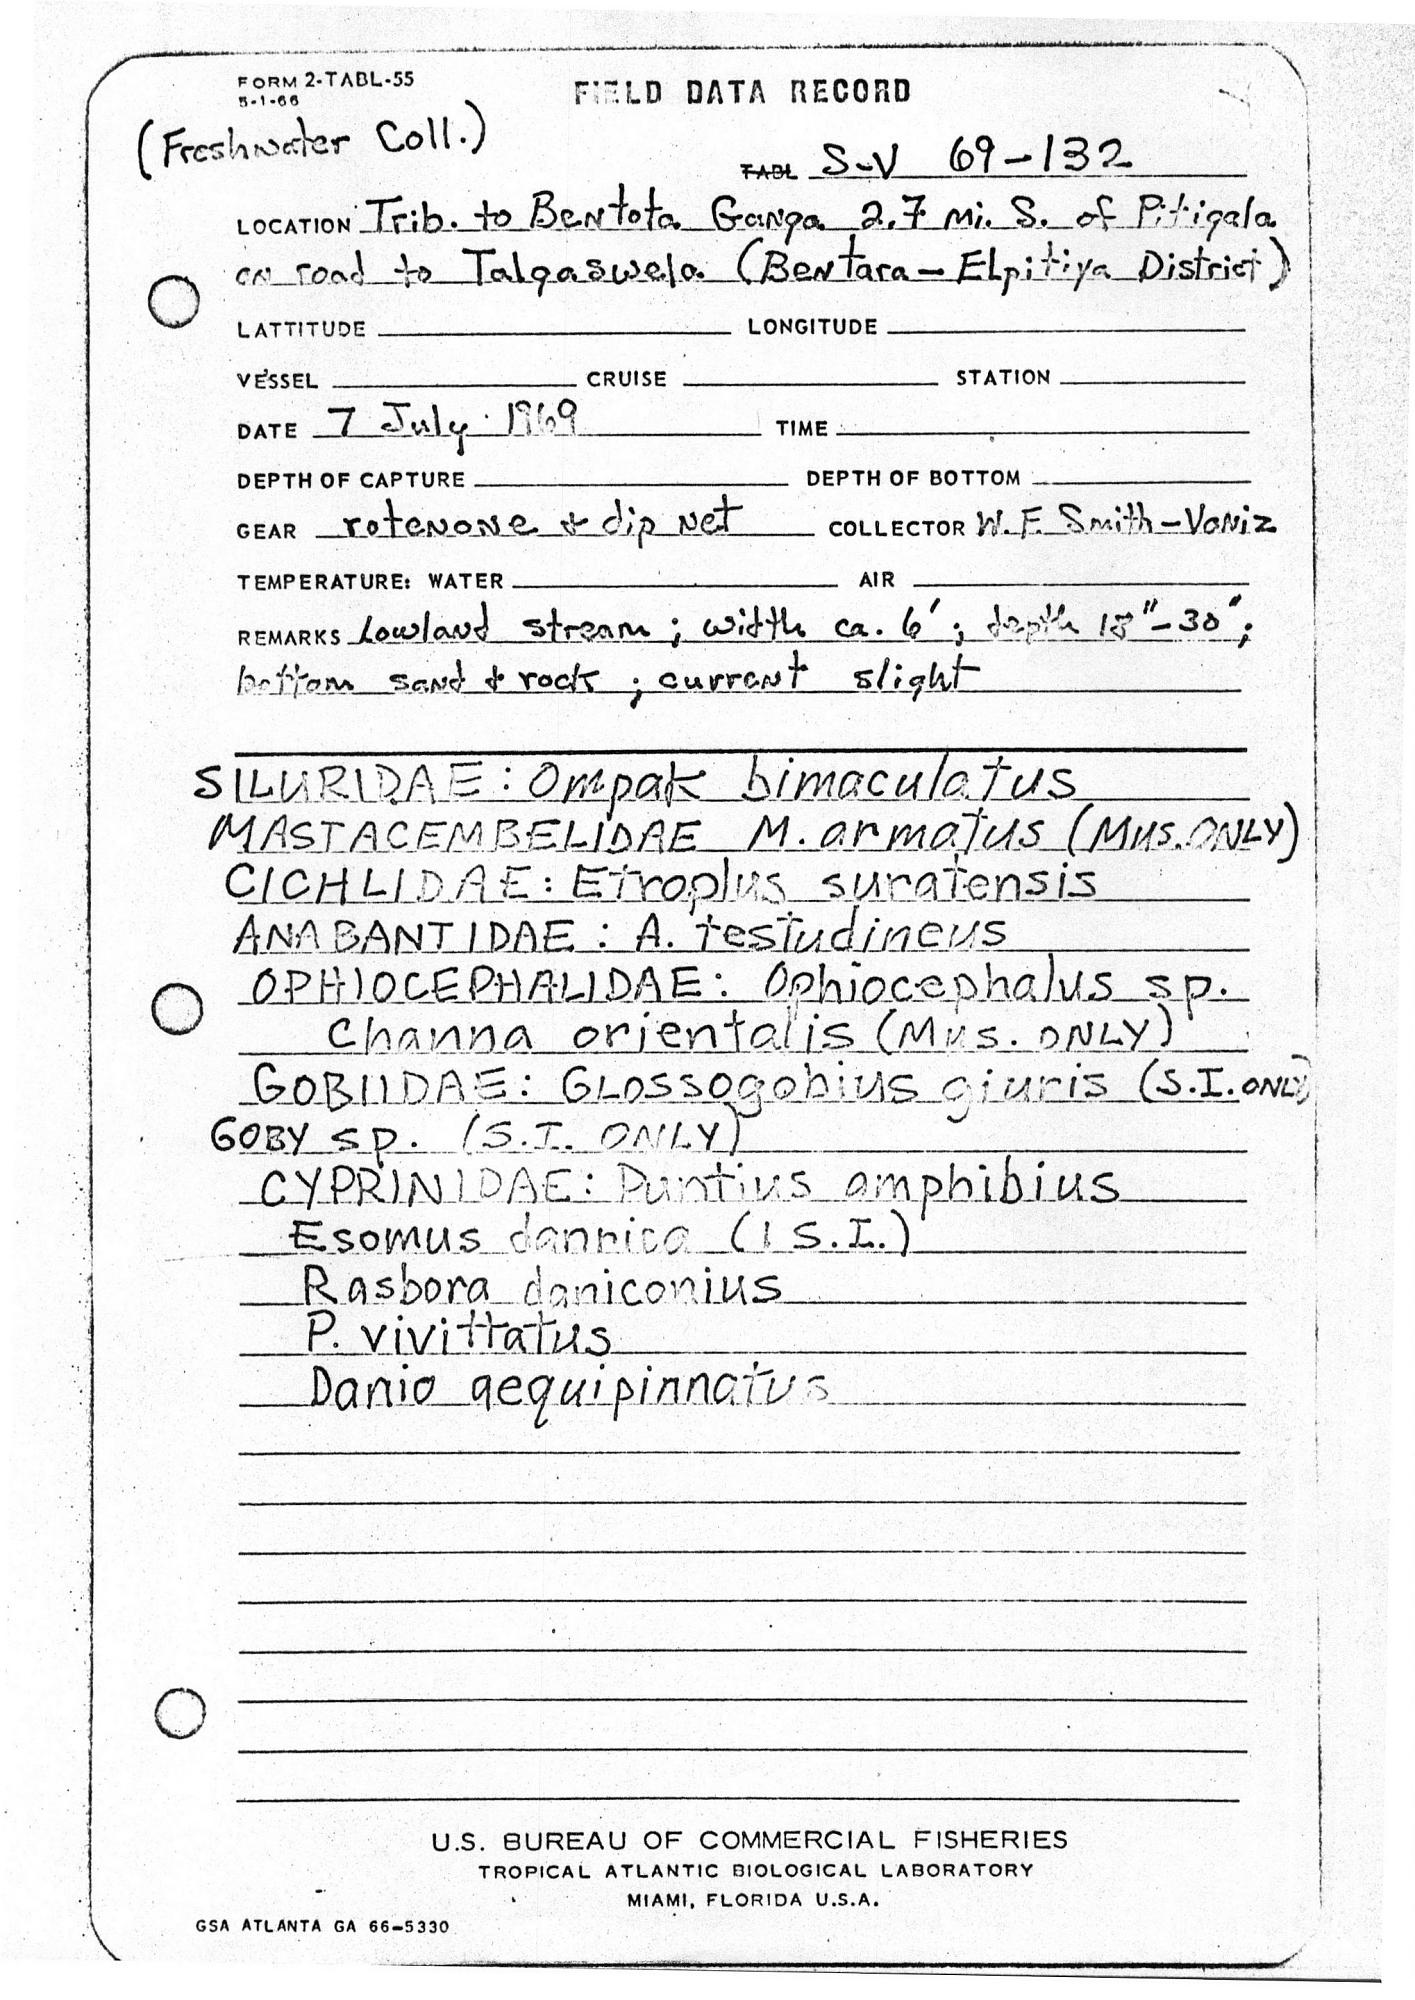 FORM 2-TABL-55
5-1-66
FIELD DATA RECORD
(Freshwater Coll.)
TABL S-V 69-132
LOCATION Trib. to Bentota Ganga 2.7 mi. S. of Pitigala
on road to Talgaswela (Bentara-Elpitiya District)
LATTITUDE LONGITUDE
VESSEL CRUISE STATION
DATE 7 July 1969 TIME
DEPTH OF CAPTURE DEPTH OF BOTTOM
GEAR rotenone & dip net COLLECTOR W. F. Smith-Vaniz
TEMPERATURE: WATER AIR
REMARKS Lowland stream; width ca. 6'; depth 18"-30";
bottom sand & rock; current slight
SILURIDAE: Ompak bimaculatus
MASTACEMBELIDAE M. armatus (Mus. ONLY)
CICHLIDAE: Etroplus suratensis
ANABANTIDAE: A. testudineus
OPHIOCEPHALIDAE: Ophiocephalus sp.
Channa orientalis (Mus. ONLY)
GOBIIDAE: GLOSSOgobius giuris (S.I. ONLY)
GOBY sp. (S.I. ONLY)
CYPRINIDAE: Puntius amphibius
Esomus danrica (1 S.I.)
Rasbora daniconius
P. vivittatus
Danio aequipinnatus
U.S. BUREAU OF COMMERCIAL FISHERIES
TROPICAL ATLANTIC BIOLOGICAL LABORATORY
MIAMI, FLORIDA U.S.A.
GSA ATLANTA GA 66-5330